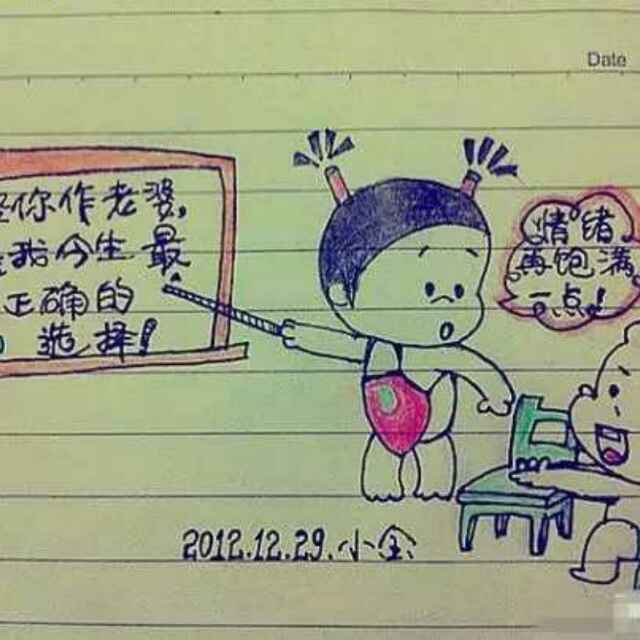 Date
你作老婆,
我今生最
正确的
选择!
情绪
再饱满
一点!
2012.12.29.小全